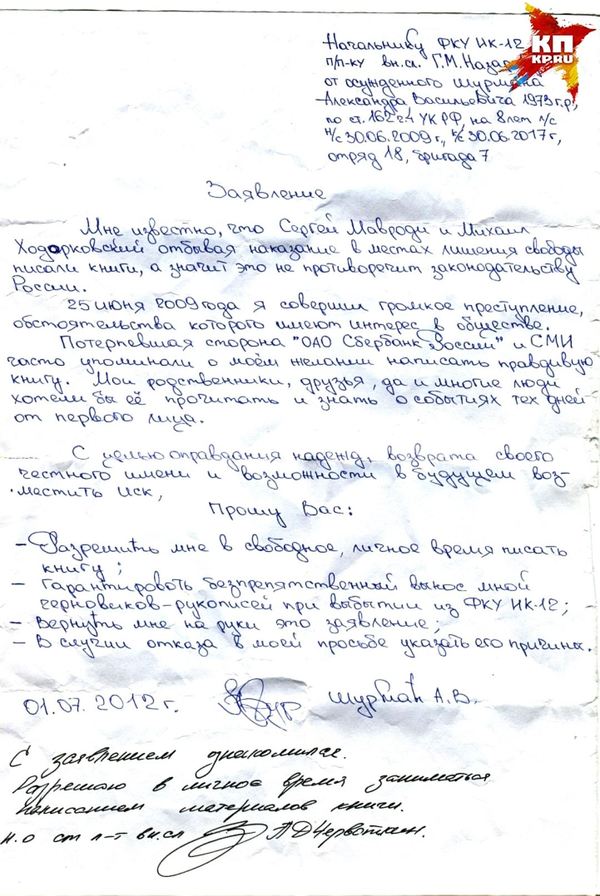 КП
KP.RU
Начальнику ФКУ ИК-12
п/п-ку вн.сл. Г.М. Назар
от осужденного Шурмана
Александра Васильевича 1973 г.р,
по ст. 162 ч4 УК РФ, на 8 лет л/с
н/с 30.06.2009г., к/с 30.06.2017г,
отряд 18, бригада 7
Заявление
Мне известно, что Сергей Мавроди и Михаил
Ходорковский отбывая наказание в местах лишения свободы
писали книги, а значит это не противоречит законодательству
России.
25 июня 2009 года я совершил громкое преступление,
обстоятельства которого имеют интерес в обществе.
Потерпевшая сторона "ОАО Сбербанк России" и СМИ
часто упоминали о моём желании написать правдивую
книгу. Мои родственники, друзья, да и многие люди
хотели бы её прочитать и знать о событиях тех дней
от первого лица.
С целью оправдания надежд, возврата своего
честного имени и возможности в будущем воз-
местить иск,
Прошу Вас:
– Разрешить мне в свободное, личное время писать
книгу;
– Гарантировать безпрепятственный вынос мной
черновиков-рукописей при выбытии из ФКУ ИК-12;
– Вернуть мне на руки это заявление;
– В случии отказа в моей просьбе указать его причины.
01.07.2012г. Шурман А.В.
С заявлением ознакомился.
Разрешаю в личное время заниматься
написанием материалов книги.
н.о ст л-т вн.сл